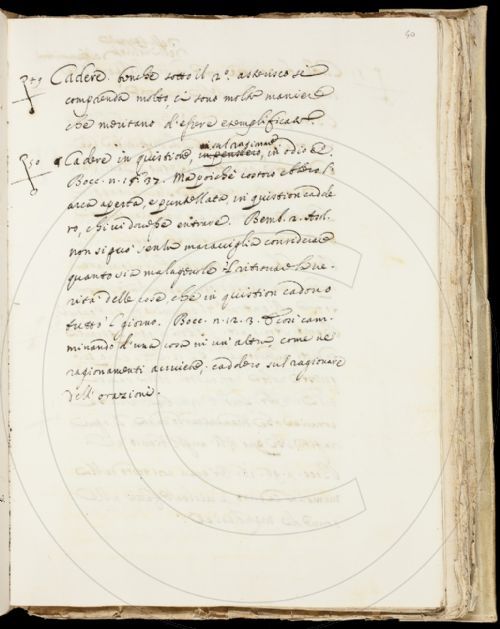 50
249 Cadere. benche sotto il 2º. asterisco si
comprenda molto, ci sono molte maniere
che meritano d'essere esemplificate.
250 Cadere in quistione, in pensiero, in odio &c.
sul ragionare
Bocc. n. 15. 37. Ma poichè costoro ebbero l'
arca aperta, e puntellata, in quistion cadde
ro, chi vi dovesse entrare. Bemb. 2. Asol.
non si può senza maraviglia considerare
quanto sia malagevole il ritrovare la ve-
rità delle cose che in quistion cadono
tutto 'l giorno. Bocc. n. 12. 3. E così cam-
minando d'una cosa in un'altra, come ne'
ragionamenti avviene, caddero sul ragionare
dell'orazioni.